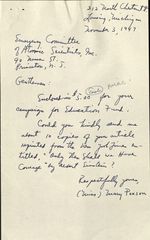 312 North Chestnut St
Lansing, Michigan
November 3, 1947
Emergency Committee
of Atomic Scientists, Inc.
90 Nassau St.
Princeton, N. J.
Gentlemen:
Enclosed is $5.00 for your
campaign for Education Fund.
Could you kindly send me
about 10 copies of your article
reprinted from the
titled, "Only Then Shall We Have
Courage" by Albert Einstein?
Respectfully yours,
(Miss) Mary Paxson